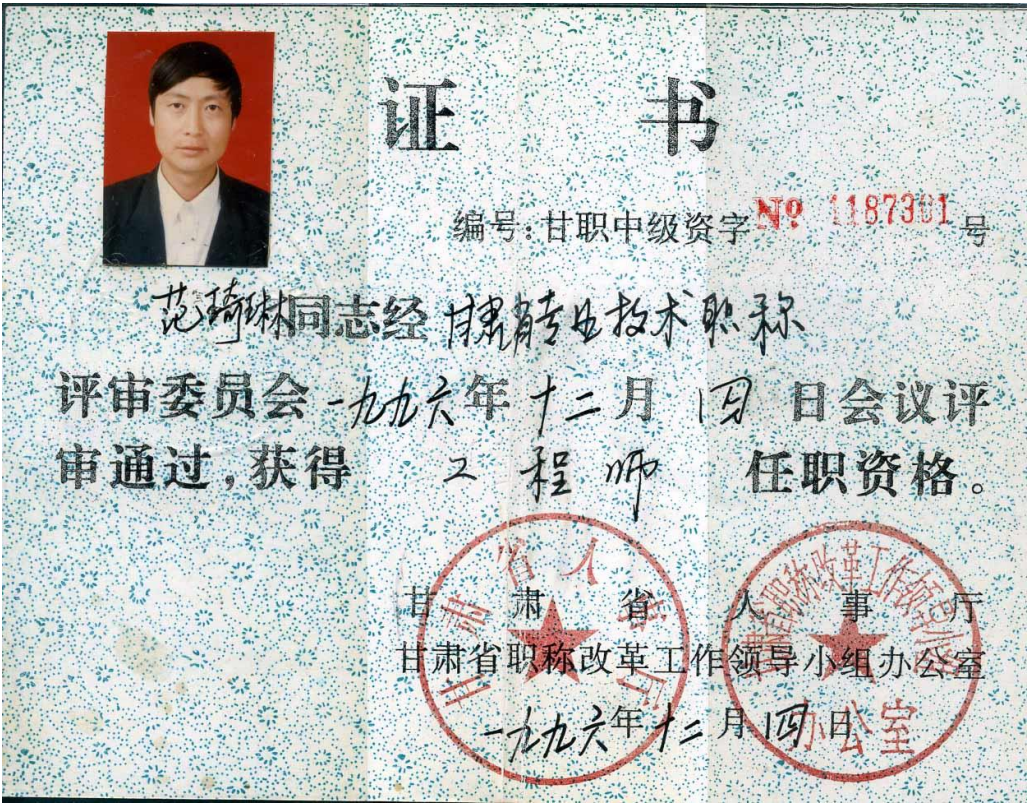 证书
编号:甘职中级资字 № 1187301 号
范琦琳同志经 甘肃省专业技术职称
评审委员会 一九九六年 十二月 四 日会议评
审通过,获得 工程师 任职资格。
甘肃省人事厅
甘肃省职称改革工作领导小组办公室
一九九六年十二月四日
甘肃省人事厅
甘肃省职称改革工作领导小组
办公室